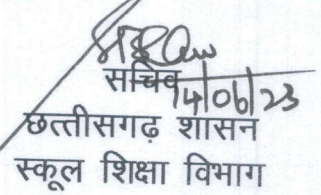 सचिव
14/06/23
छत्तीसगढ़ शासन
स्कूल शिक्षा विभाग